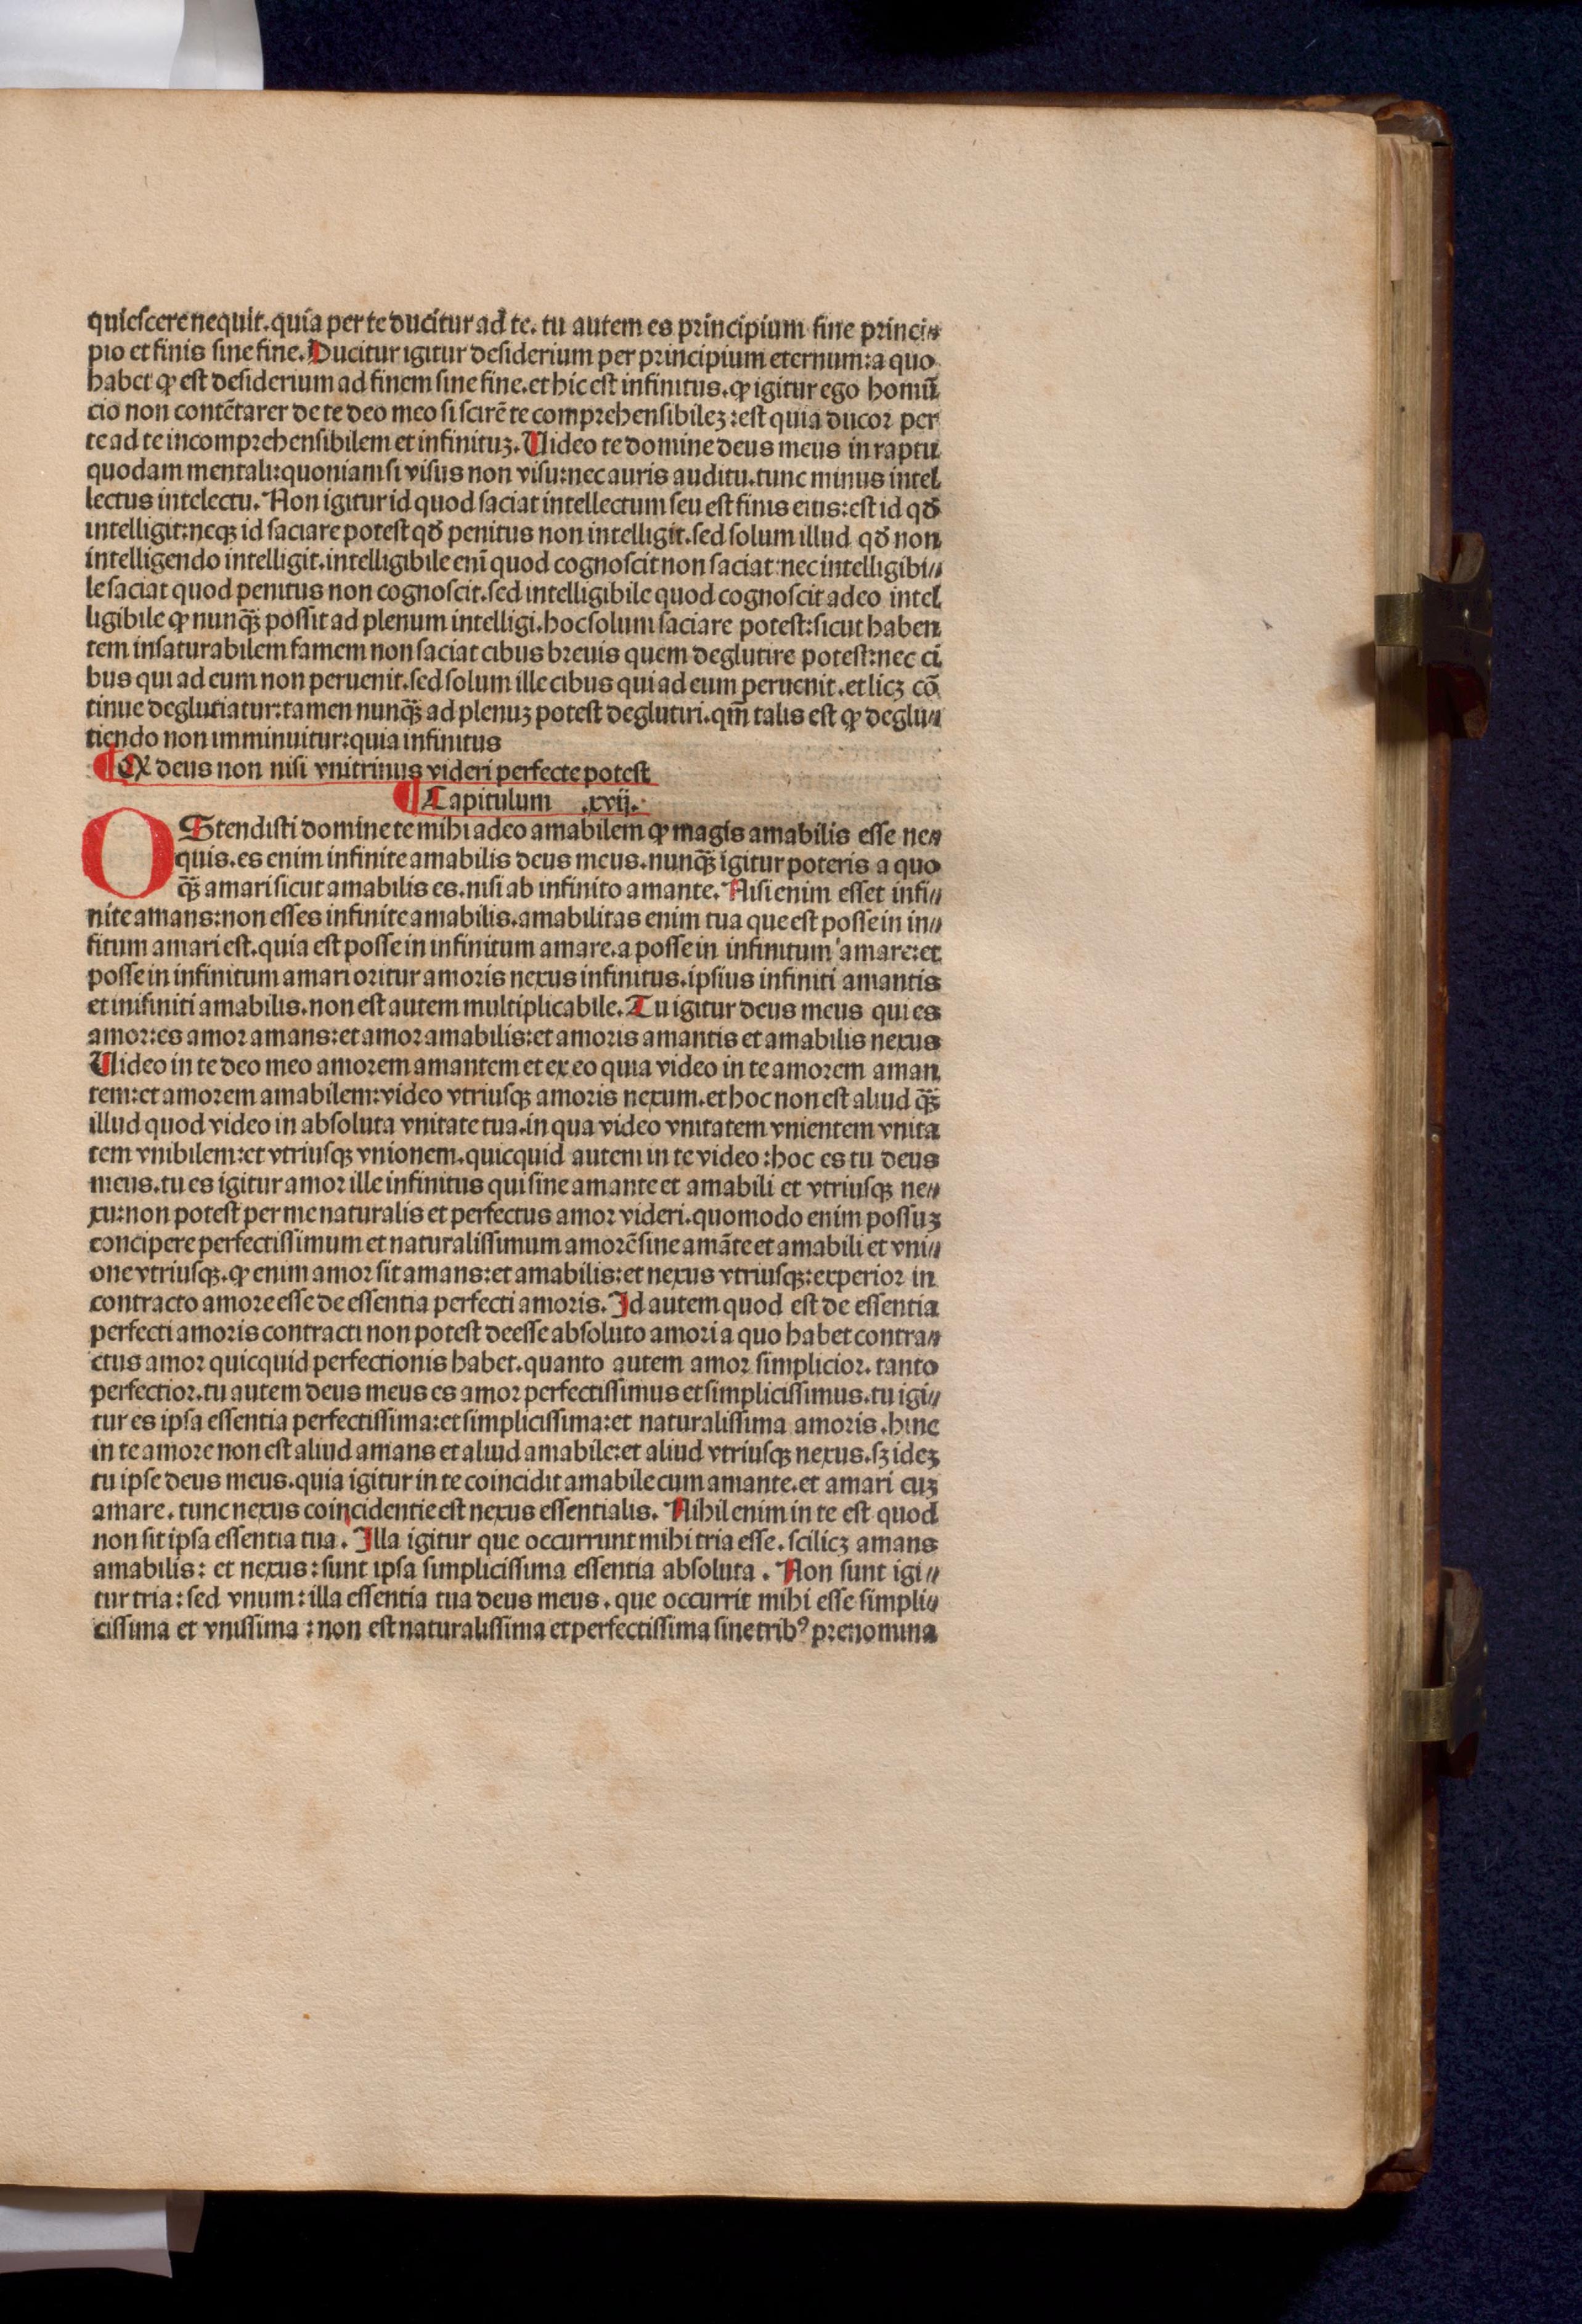 quiescere nequit. quia per te ducitur ad te. tu autem es principium sine princi⸗
pio et finis sine fine. Ducitur igitur desiderium per principium eternum: a quo
habet ꝙ est desiderium ad finem sine fine. et hic est infinitus. ꝙ igitur ego homū
cio non contētarer de te deo meo si scirē te comprehensibileꝫ: est quia ducor per
te ad te incomprehensibilem et infinituꝫ. Uideo te domine deus meus in raptu
quodam mentali: quoniam si visus non visu: nec auris auditu. tunc minus intel
lectus intelectu. Non igitur id quod saciat intellectum seu est finis eius: est id qđ
intelligit: neqꝫ id saciare potest qđ penitus non intelligit. sed solum illud qđ non
intelligendo intelligit. intelligibile eni̅ quod cognoscit non saciat: nec intelligibi⸗
le saciat quod penitus non cognoscit. sed intelligibile quod cognoscit adeo intel
ligibile ꝙ nunq̃ꝫ possit ad plenum intelligi. hoc solum saciare potest: sicut haben
tem insaturabilem famem non saciat cibus breuis quem deglutire potest: nec ci
bus qui ad eum non peruenit. sed solum ille cibus qui ad eum peruenit. et licꝫ cō
tinue deglutiatur: tamen nunq̃ꝫ ad plenuꝫ potest deglutiri. qm̄ talis est ꝙ deglu⸗
tiendo non imminuitur: quia infinitus
¶ Ꝙ deus non nisi vnitrinus videri perfecte potest
¶ Capitulum .xvij.
OStendisti domine te mihi adeo amabilem ꝙ magis amabilis esse ne⸗
quis. es enim infinite amabilis deus meus. nunq̃ꝫ igitur poteris a quo
q̃ꝫ amari sicut amabilis es. nisi ab infinito amante. Nisi enim esset infi⸗
nite amans: non esses infinite amabilis. amabilitas enim tua que est posse in in⸗
fitum amari est. quia est posse in infinitum amare. a posse in infinitum amare: et
posse in infinitum amari oritur amoris nexus infinitus. ipsius infiniti amantis
et inifiniti amabilis. non est autem multiplicabile. Tu igitur deus meus qui es
amor: es amor amans: et amor amabilis: et amoris amantis et amabilis nexus
Uideo in te deo meo amorem amantem et ex eo quia video in te amorem aman
tem: et amorem amabilem: video vtriusqꝫ amoris nexum. et hoc non est aliud q̃ꝫ
illud quod video in absoluta vnitate tua. in qua video vnitatem vnientem vnita
tem vnibilem: et vtriusqꝫ vnionem. quicquid autem in te video: hoc es tu deus
meus. tu es igitur amor ille infinitus qui sine amante et amabili et vtriusqꝫ ne⸗
xu: non potest per me naturalis et perfectus amor videri. quomodo enim possuꝫ
concipere perfectissimum et naturalissimum amorē sine amāte et amabili et vni⸗
one vtriusqꝫ. ꝙ enim amor sit amans: et amabilis: et nexus vtriusqꝫ: experior in
contracto amore esse de essentia perfecti amoris. Id autem quod est de essentia
perfecti amoris contracti non potest deesse absoluto amori a quo habet contra⸗
ctus amor quicquid perfectionis habet. quanto autem amor simplicior. tanto
perfectior. tu autem deus meus es amor perfectissimus et simplicissimus. tu igi⸗
tur es ipsa essentia perfectissima: et simplicissima: et naturalissima amoris. hinc
in te amore non est aliud amans et aliud amabile: et aliud vtriusqꝫ nexus. sꝫ ideꝫ
tu ipse deus meus. quia igitur in te coincidit amabile cum amante. et amari cuꝫ
amare. tunc nexus coincidentie est nexus essentialis. Nihil enim in te est quod
non sit ipsa essentia tua. Illa igitur que occurrunt mihi tria esse. scilicꝫ amans
amabilis: et nexus: sunt ipsa simplicissima essentia absoluta. Non sunt igi⸗
tur tria: sed vnum: illa essentia tua deus meus. que occurrit mihi esse simpli⸗
cissima et vnissima: non est naturalissima et perfectissima sine tribꝰ prenomina